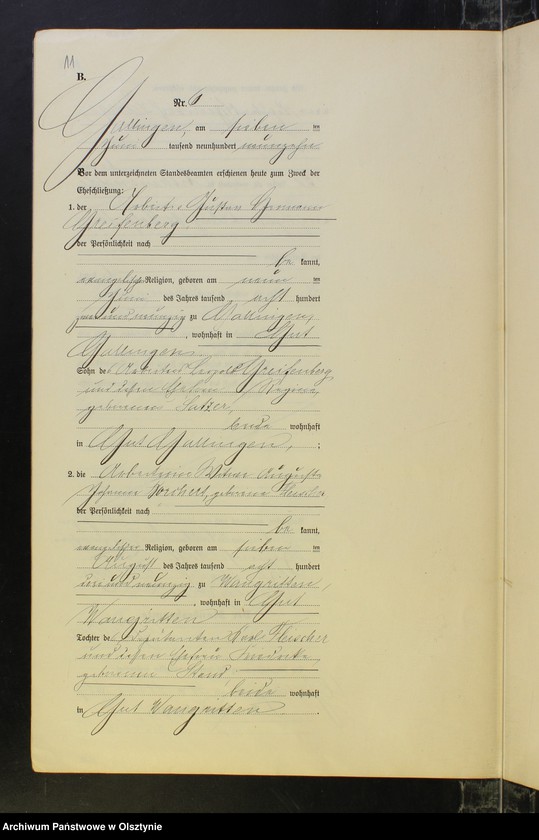 11
B.
Nr. 6
Gallingen, am sieben ten
Juni tausend neunhundert neunzehn
Vor dem unterzeichneten Standesbeamten erschienen heute zum Zweck der
Eheschließung:
1. der Arbeiter Gustav Hermann
Greifenberg
der Persönlichkeit nach
be kannt,
evangelischer Religion, geboren am neun ten
Juni des Jahres tausend acht hundert
zwei und neunzig zu Gallingen,
, wohnhaft in Gut
Gallingen
Sohn des Arbeiters Leopold Greifenberg
und dessen Ehefrau Regine,
geborenen
beide wohnhaft
in Gut Gallingen, ;
2. die Arbeiterin Witwe Auguste
Johanne Borchert, geborene Fleischer
der Persönlichkeit nach
be kannt,
evangelischer Religion, geboren am sieben ten
August des Jahres tausend acht hundert
und neunzig zu Wangritten,
, wohnhaft in Gut
Wangritten
Tochter des Deputanten Karl Fleischer
und dessen Ehefrau
geborenen
beide wohnhaft
in Gut Wangritten .
Archiwum Państwowe w Olsztynie